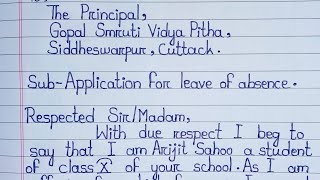 The Principal,
Gopal Smruti Vidya Pitha,
Siddheswarpur, Cuttack.
Sub-Application for leave of absence.
Respected Sir/Madam,
With due respect I beg to
say that I am Arijit Sahoo a student
of class 'X' of your school. As I am